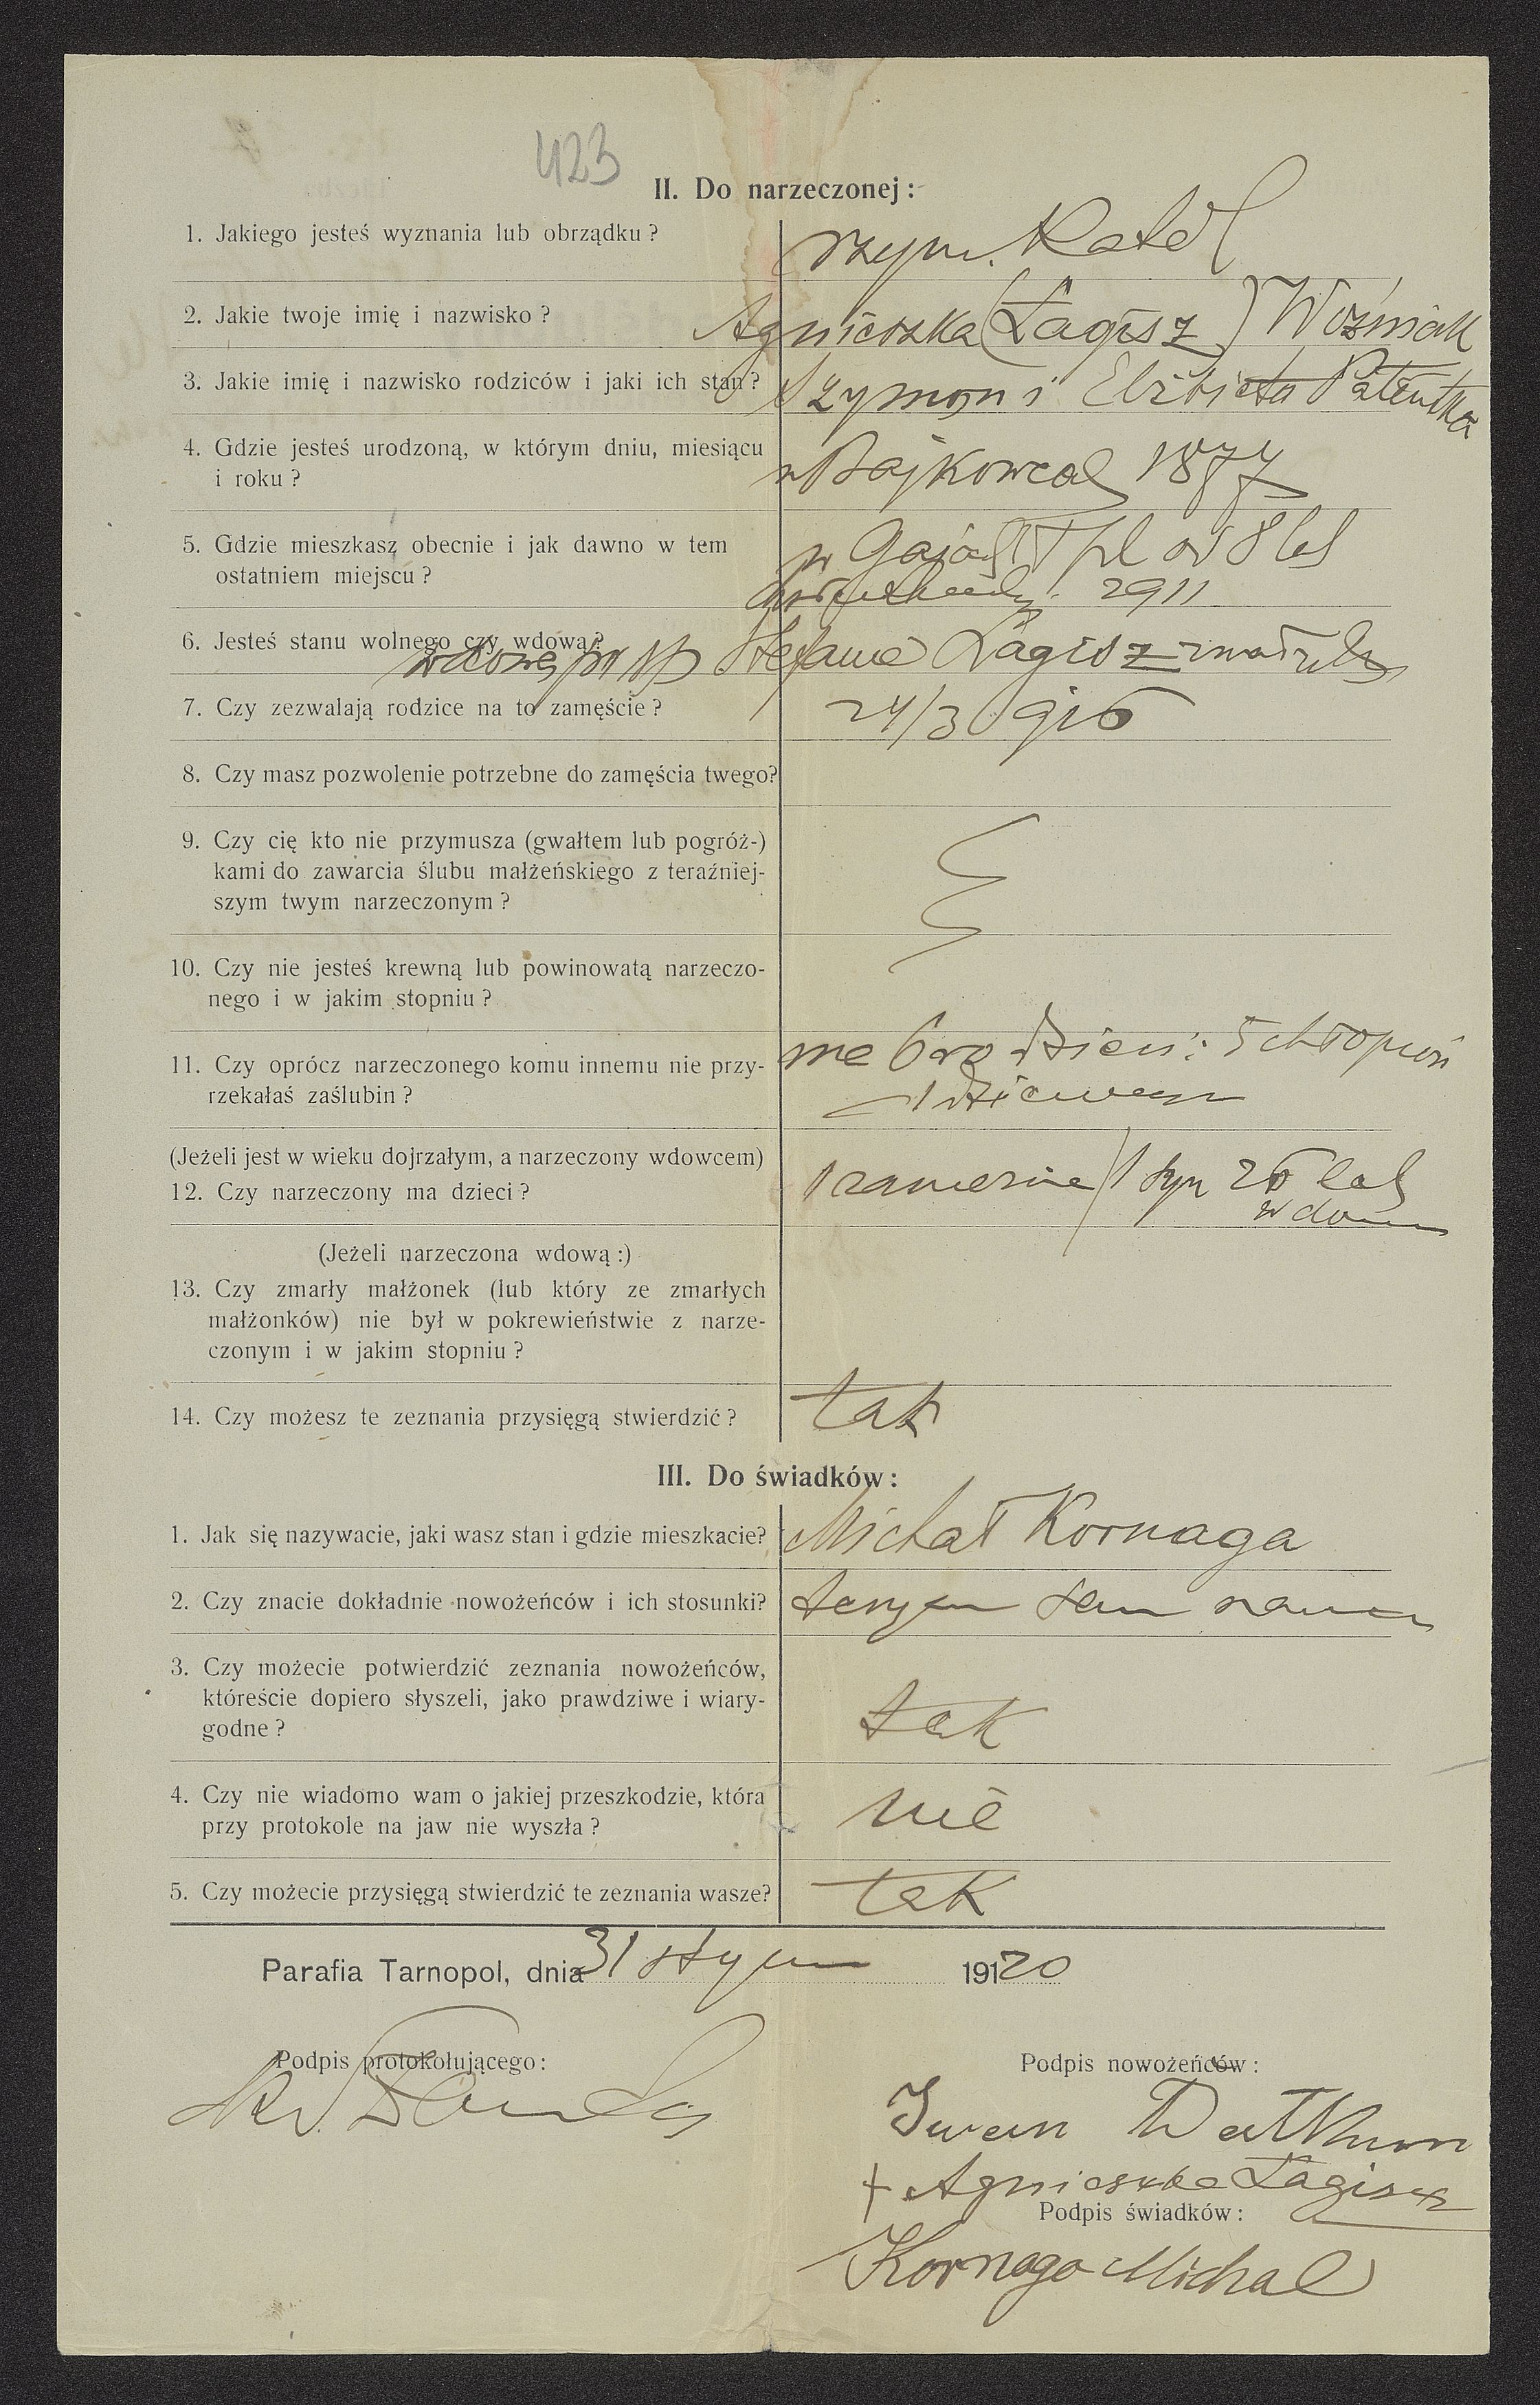 423
II. Do narzeczonej:
1. Jakiego jesteś wyznania lub obrządku? rzym. Katol
2. Jakie twoje imię i nazwisko? Agnieszka (Łagisz) Woźniak
3. Jakie imię i nazwisko rodziców i jaki ich stan? Szymon i Elżbieta
4. Gdzie jesteś urodzoną, w którym dniu, miesiącu
i roku? w Bajkowcach 1877
5. Gdzie mieszkasz obecnie i jak dawno w tem
ostatniem miejscu? w Gajach Tpl od 8 lat
2911
6. Jesteś stanu wolnego czy wdową?
wdowa po śp Stefanie Łagisz zmarłym
7. Czy zezwalają rodzice na to zamęście? 24/3 916
8. Czy masz pozwolenie potrzebne do zamęścia twego?
9. Czy cię kto nie przymusza (gwałtem lub pogróż-)
kami do zawarcia ślubu małżeńskiego z teraźniej-
szym twym narzeczonym?
10. Czy nie jesteś krewną lub powinowatą narzeczo-
nego i w jakim stopniu?
11. Czy oprócz narzeczonego komu innemu nie przy-
rzekałaś zaślubin?
ma 6ro dzieci: 5 chłopców
1 dziewczyn
(Jeżeli jest w wieku dojrzałym, a narzeczony wdowcem)
12. Czy narzeczony ma dzieci? 1 zamężna / 1 syn 26 lat
w domu
(Jeżeli narzeczona wdową:)
13. Czy zmarły małżonek (lub który ze zmarłych
małżonków) nie był w pokrewieństwie z narze-
czonym i w jakim stopniu?
14. Czy możesz te zeznania przysięgą stwierdzić? tak
III. Do świadków:
1. Jak się nazywacie, jaki wasz stan i gdzie mieszkacie? Michał Kornaga
2. Czy znacie dokładnie nowożeńców i ich stosunki?
3. Czy możecie potwierdzić zeznania nowożeńców,
któreście dopiero słyszeli, jako prawdziwe i wiary-
godne? tak
4. Czy nie wiadomo wam o jakiej przeszkodzie, która
przy protokole na jaw nie wyszła? nie
5. Czy możecie przysięgą stwierdzić te zeznania wasze? tak
Parafia Tarnopol, dnia 31 styczn 19120
Podpis protokołującego:
Podpis nowożeńców:
Iwan
+ Agnieszka Łagisz
Podpis świadków:
Kornaga Michal